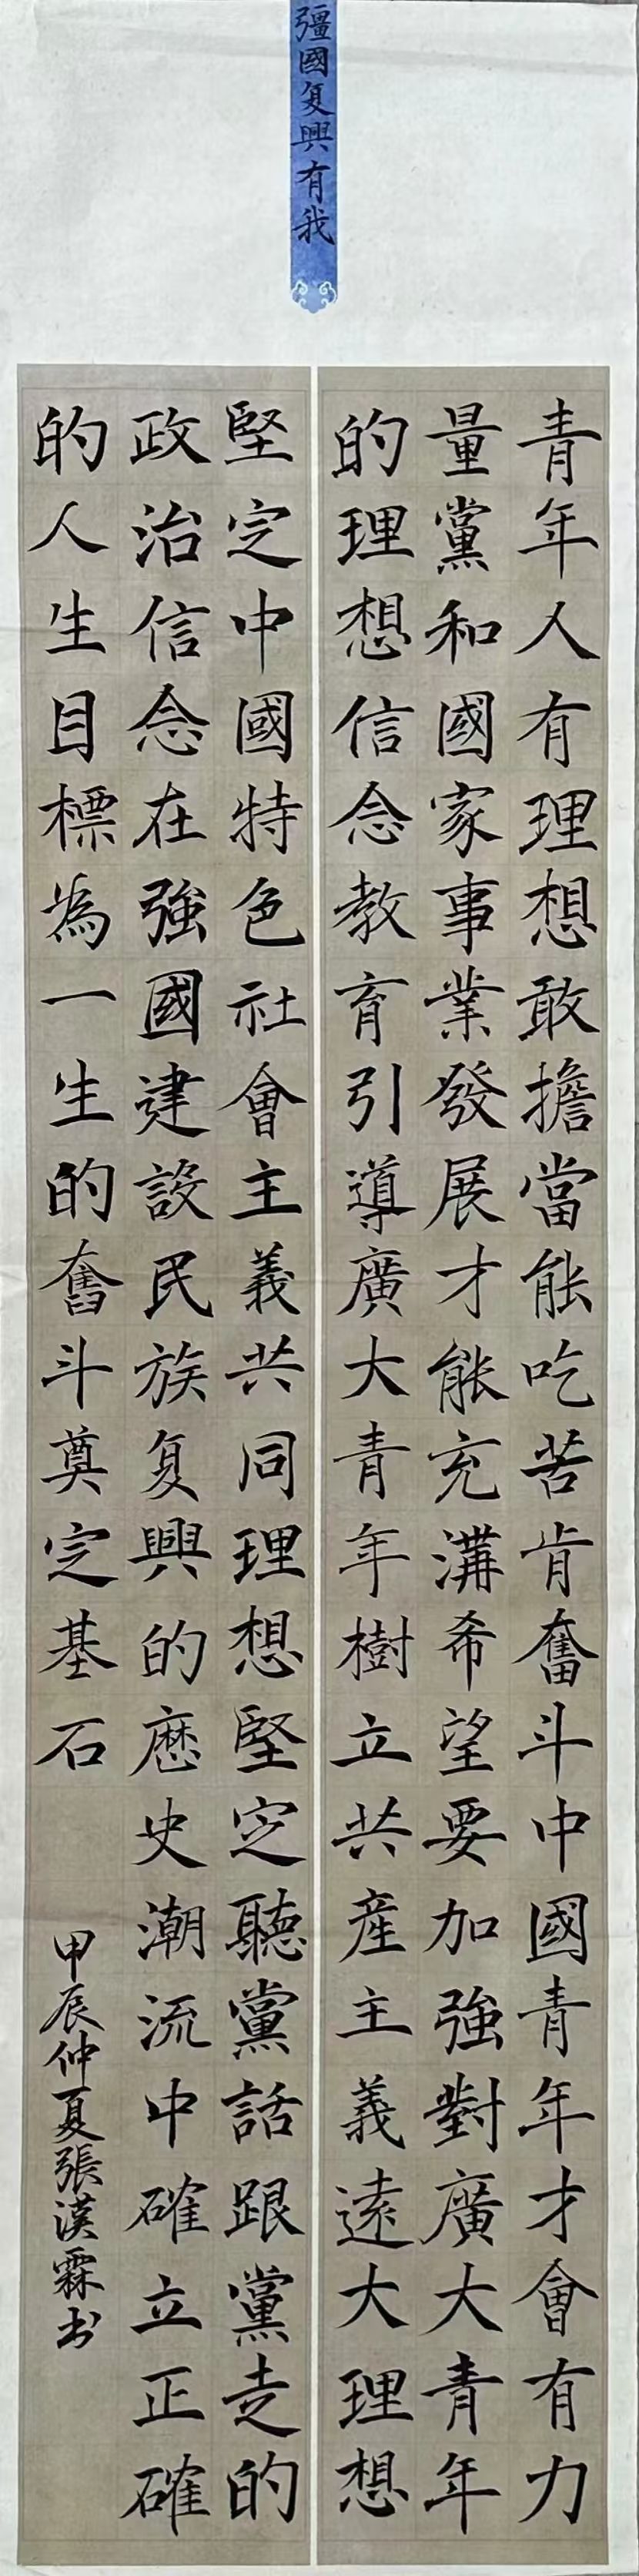 彊國复興有我
青年人有理想敢擔當能吃苦肯奮斗中國青年才會有力
量黨和國家事業發展才能充溝希望要加強對廣大青年
的理想信念教育引導廣大青年樹立共產主義遠大理想
堅定中國特色社會主義共同理想堅定聽黨話跟黨走的
政治信念在強國建設民族复興的歷史潮流中確立正確
的人生目標為一生的奮斗奠定基石
甲辰仲夏張漢霖书